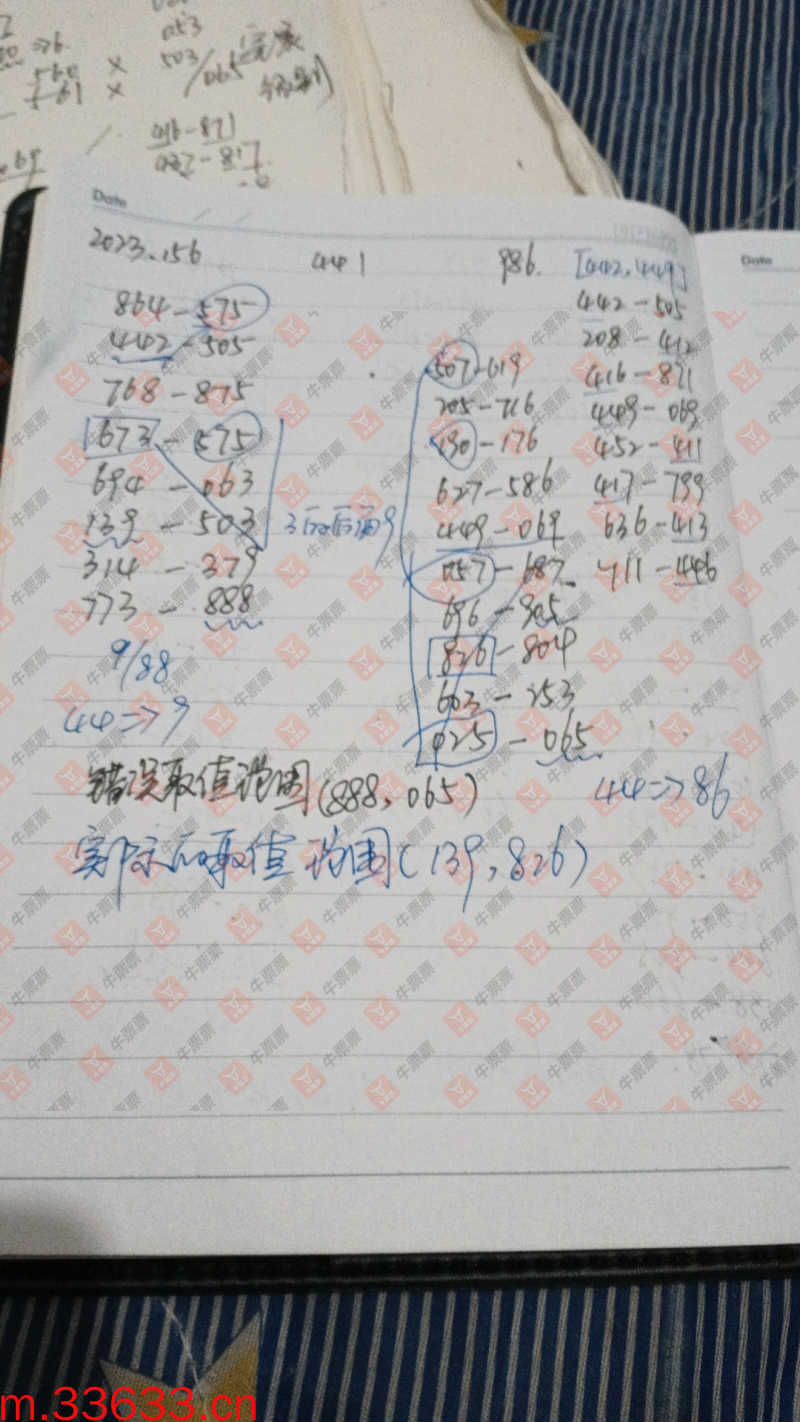 053
560 ×
503/065
561 ×
016-871
032-817
Date
Date
2023.156
441
986.
[442,449]
864-575
442-505
768-875
673-575
694-063
139-503
314-379
773-888
9/88
44=>9
3的后面9
507-619
205-716
190-176
627-586
449-069
057-687
696-805
826-804
603-253
025-065
442-505
208-412
416-871
449-069
452-411
417-799
636-413
711-446
44=>86
错误取值范围(888,065)
实际的取值范围(139,826)
牛票票
m.33633.cn